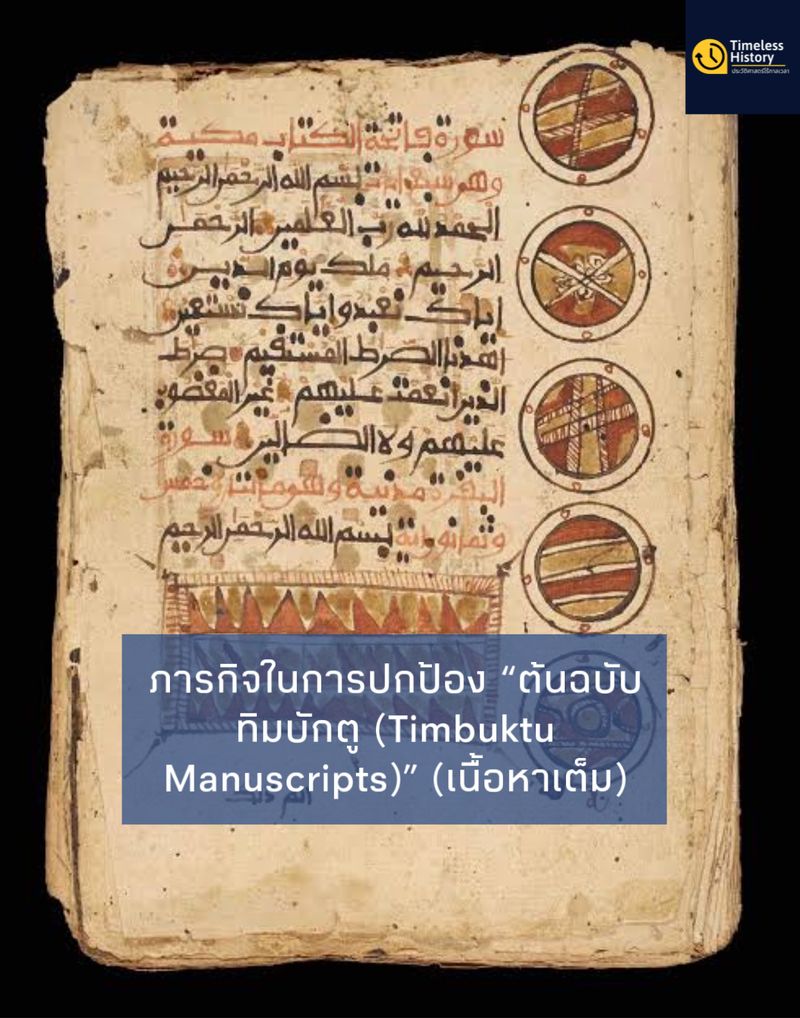 Timeless
History
ประวัติศาสตร์ไร้กาลเวลา
سورة فاتحة الكتاب مكية
وهي سبع ايات بسم الله الرحمن الرحيم
الحمد لله رب العلمين الرحمن
الرحيم ملك يوم الدين
اياك نعبد واياك نستعين
اهدنا الصرط المستقيم صرط
الذين انعمت عليهم غير المغضوب
عليهم ولا الضالين سورة
البقرة مدنية وخمس
وثمانون اية بسم الله الرحمن الرحيم
ภารกิจในการปกป้อง “ต้นฉบับ
ทิมบักตู (Timbuktu
Manuscripts)” (เนื้อหาเต็ม)